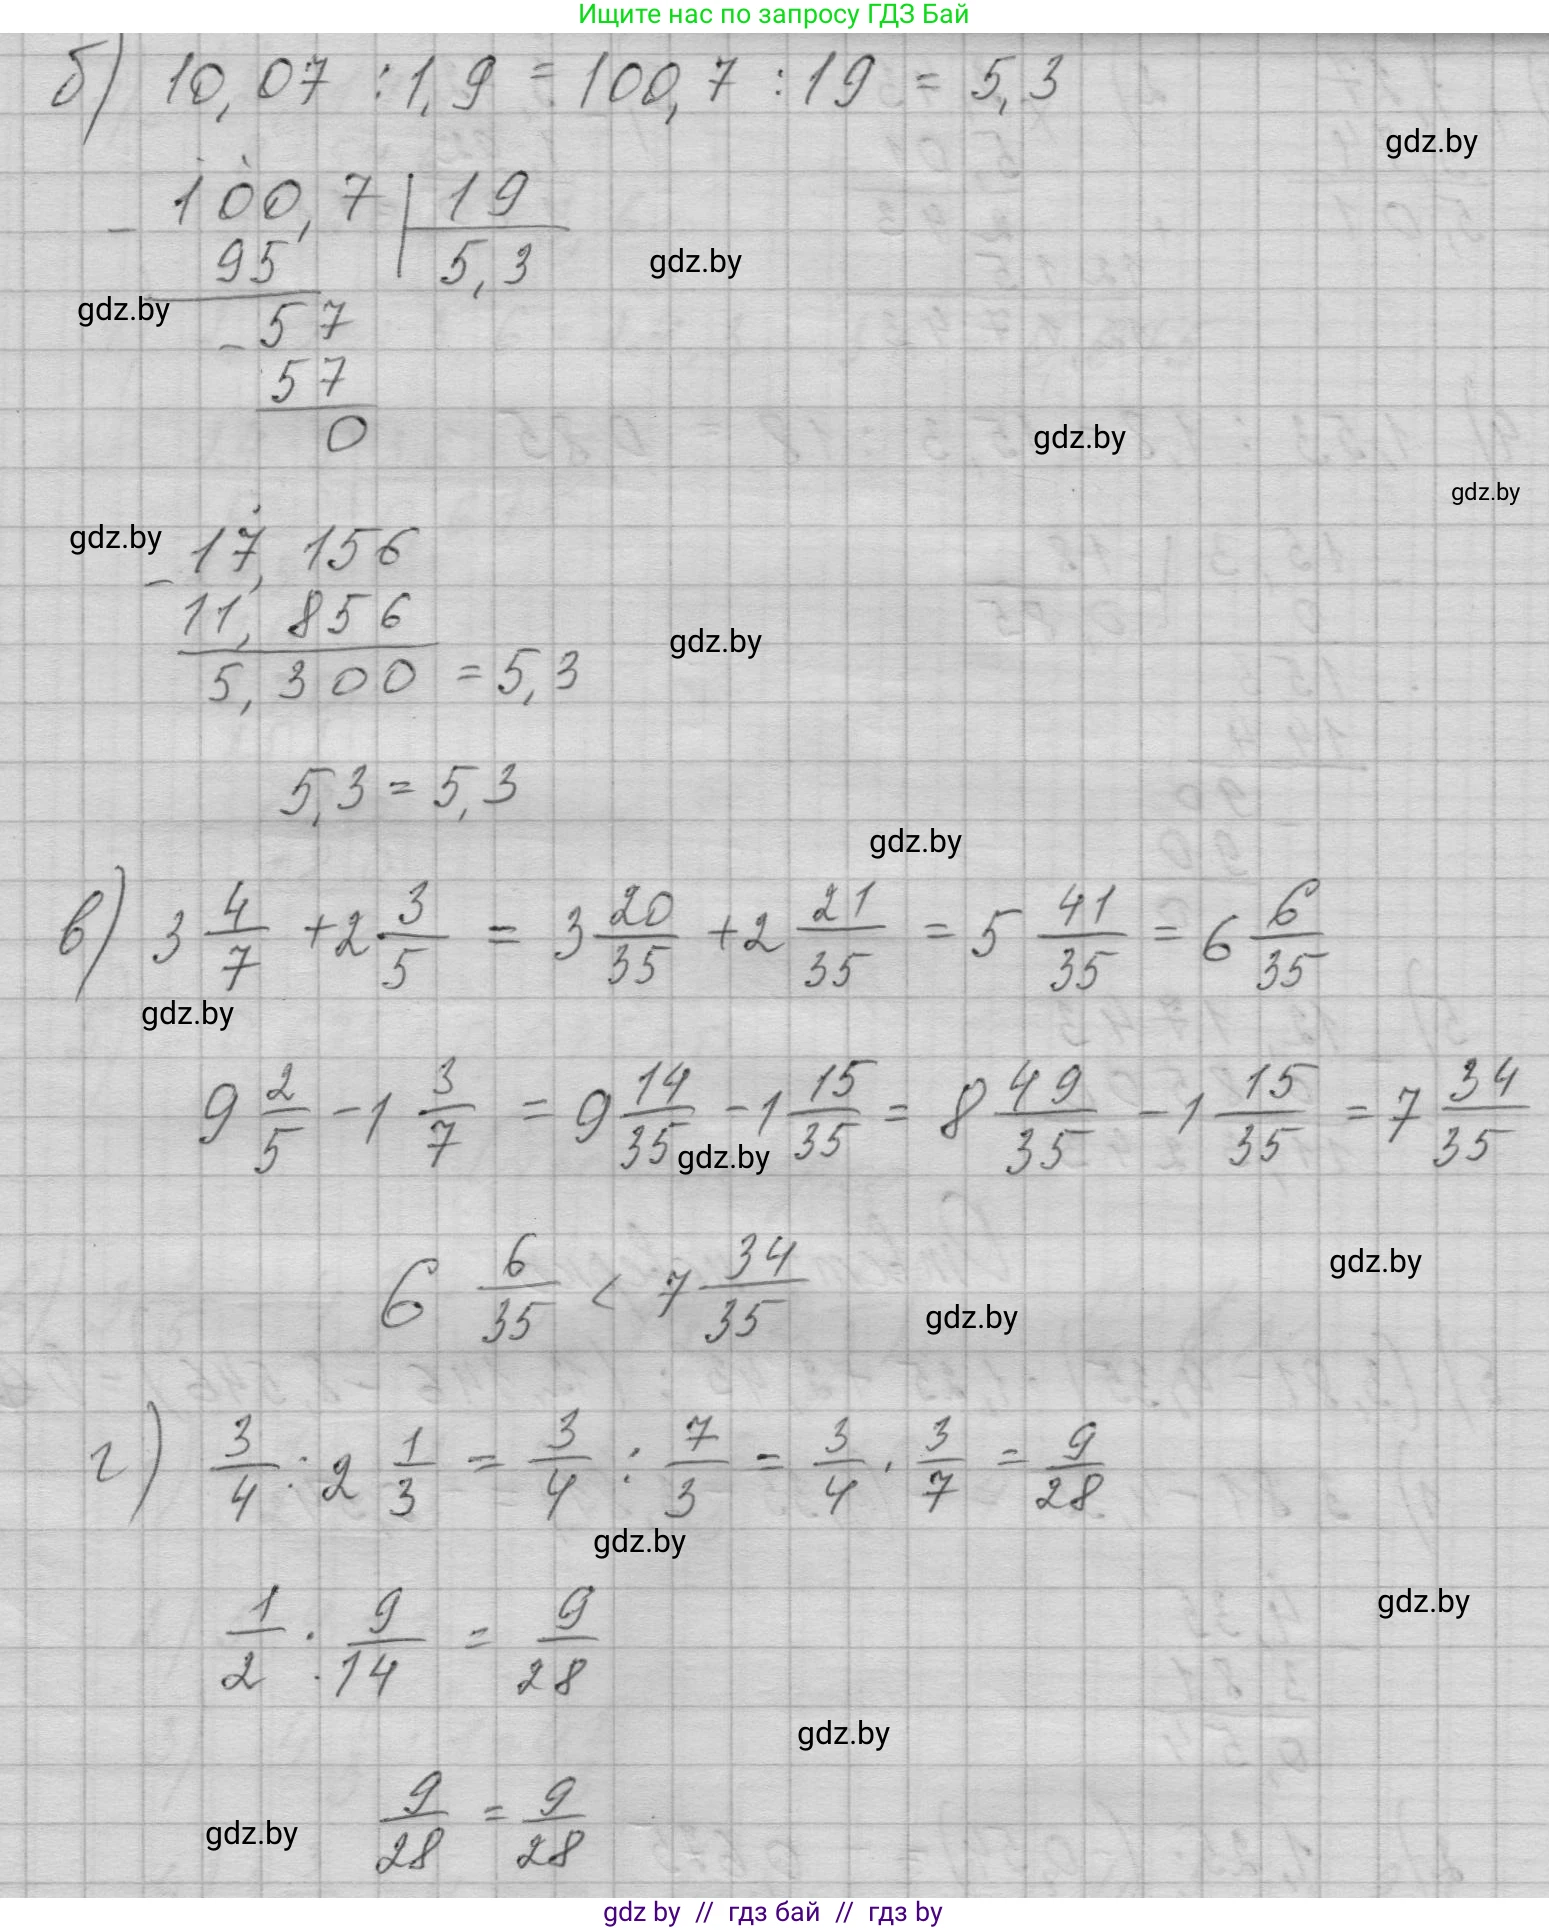 Ищите нас по запросу ГДЗ Бай
б) 10,07 : 1,9 = 100,7 : 19 = 5,3
gdz.by
- 100,7 | 19
95 5,3
gdz.by
gdz.by
- 57
57
0
gdz.by
gdz.by
gdz.by
- 17,156
11,856
5,300 = 5,3
gdz.by
5,3 = 5,3
gdz.by
в) 3 4/7 + 2 3/5 = 3 20/35 + 2 21/35 = 5 41/35 = 6 6/35
gdz.by
9 2/5 - 1 3/7 = 9 14/35 - 1 15/35 = 8 49/35 - 1 15/35 = 7 34/35
gdz.by
6 6/35 < 7 34/35
gdz.by
gdz.by
г) 3/4 : 2 1/3 = 3/4 : 7/3 = 3/4 · 3/7 = 9/28
gdz.by
1/2 : 9/14 = 9/28
gdz.by
gdz.by
9/28 = 9/28
gdz.by
gdz by // гдз бай // гдз by